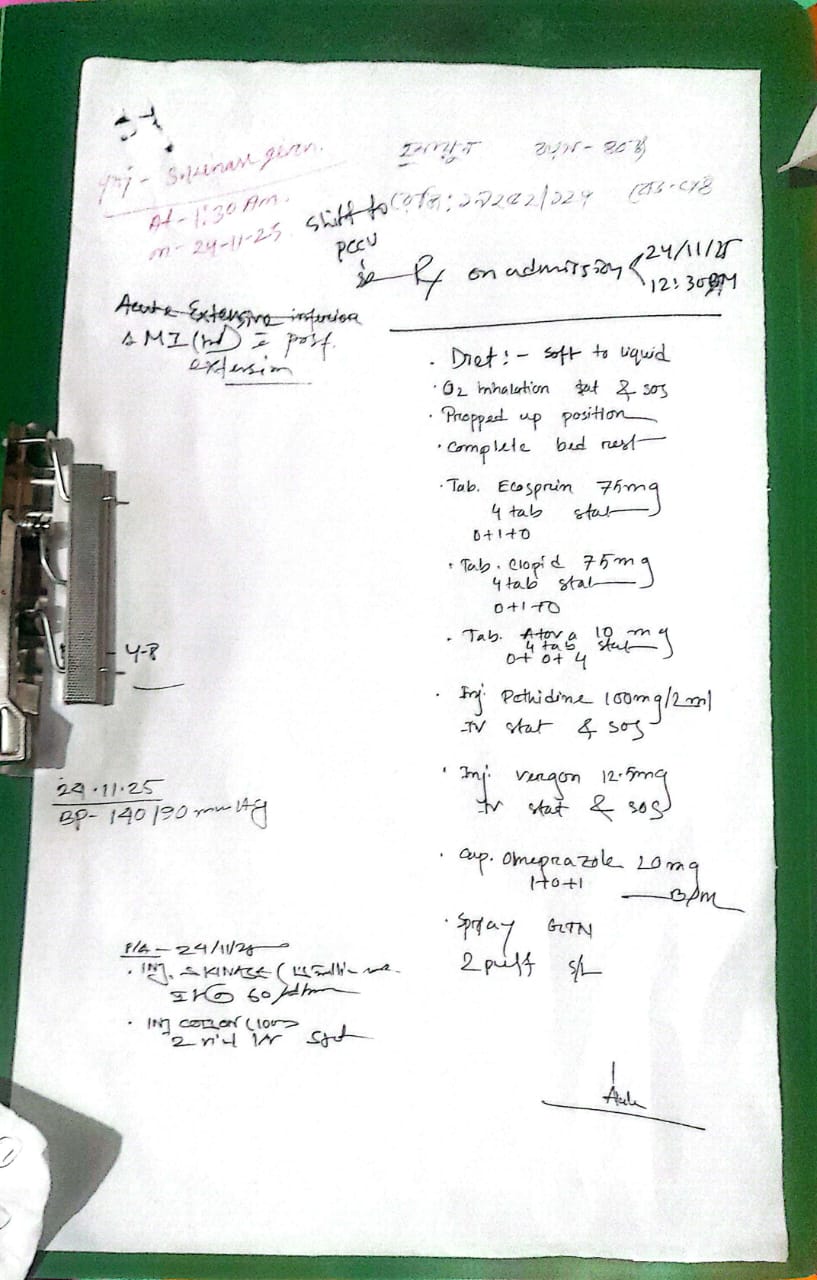 Inj - S.kinase given.
At - 1:30 Am.
on - 24-11-25.
shift to
PCCU
Rx on admission
24/11/25
12:30 PM
Acute Extensive inferior
MI ( ) c post.
extension
. Diet :- Soft to liquid
. O2 inhalation stat & SOS
. Propped up position
. complete bed rest
. Tab. Ecosprin 75mg
4 tab stat
0+1+0
. Tab. Clopid 75mg
4 tab stat
0+1+0
. Tab. Atova 10 mg
4 tab stat
0+0+4
. Inj. Pethidine 100mg/2ml
IV stat & SOS
. Inj. Vergon 12.5mg
IV stat & SOS
. Cap. Omeprazole 20mg
1+0+1
. Spray GTN
2 puff S/L
4-8
24.11.25
BP- 140/90 mmHg
24/11/25
. INJ. S KINASE (1.5
60
. INJ COTSON (100)
2 vial IV stat